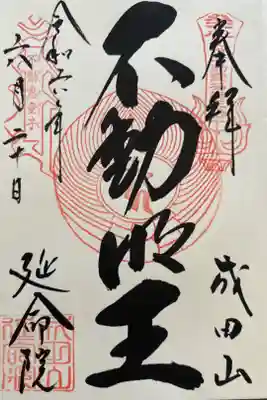 奉拝
成田山
不動明王
令和六年
六月二十日
延命院